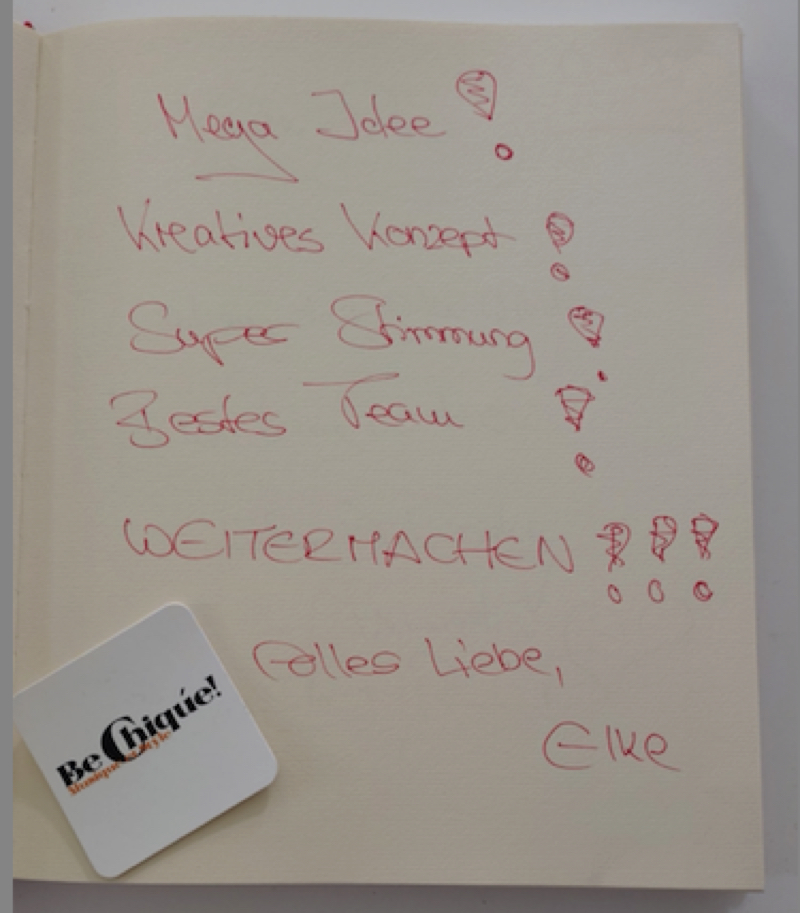 Mega Idee!
Kreatives Konzept!
Super Stimmung!
Bestes Team!
WEITERMACHEN!!!
Alles Liebe,
Elke
Be Chiqúe!